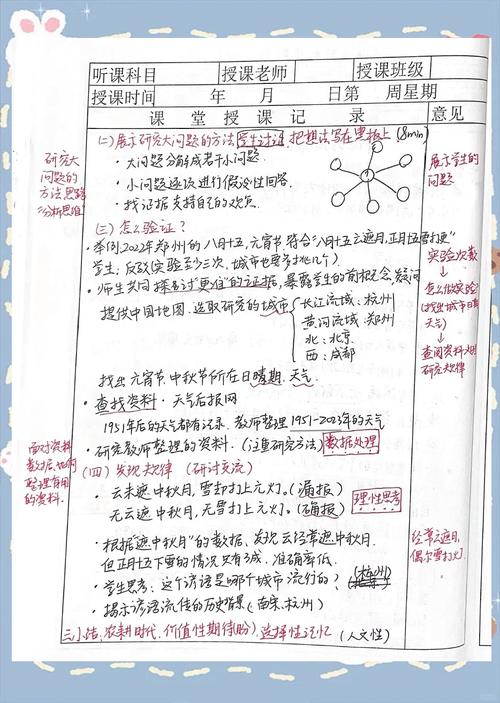 听课科目 授课老师 授课班级
授课时间 年 月 日第 周星期
课 堂 授 课 记 录 意见
(二)展示研究大问题的方法 学生讨论 把想法写在黑板上 (8min)
·大问题分解成若干小问题.
·小问题逐次进行假设性回答.
·找证据支持自己的观点.
研究大
问题的
方法,思路
分析思维
展示学生的
问题
(三)怎么验证?
·举例,2022年郑州的八月十五,元宵节,符合"八月十五云遮月,正月十五雪打灯"
学生:反驳(实验至少三次,城市也要多找几个)
·师生共同探讨"更准"的证据,暴露学生的前概念,发问
提供中国地图.选取研究的城市
长江流域:杭州
黄河流域:郑州
北:北京
西:成都
找出元宵节.中秋节所在日期.天气.
·查找资料·天气后报网
1951年后的天气都有记录.教师整理1951-2023年的天气
·研究教师整理的资料.(注重研究方法) 数据处理
实验次数
怎么做实验
(找出城市日期
天气)
查阅资料
研究规律
面对资料
数据,如何
整理有用
的资料.
(四)发现规律 (研讨交流)
·云未遮中秋月,雪却打上元灯。(漏报)
无云遮中秋月,无雪打上元灯。(确报)
理性思考
·根据"遮中秋月"的数据,发现云经常遮中秋月.
但正月十五下雪的情况只有3成.准确率低.
·学生思考:这个谚语是哪个城市流行的?(杭州)
·揭示谚语流传的历史背景(南宋.杭州)
经常云遮月,
偶尔雪打灯.
三、小结:农耕时代.价值性期待(盼).选择性记忆 (人文性)